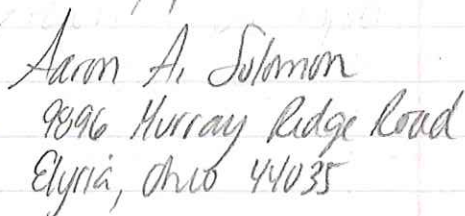 Aaron A. Solomon
9896 Murray Ridge Road
Elyria, Ohio 44035